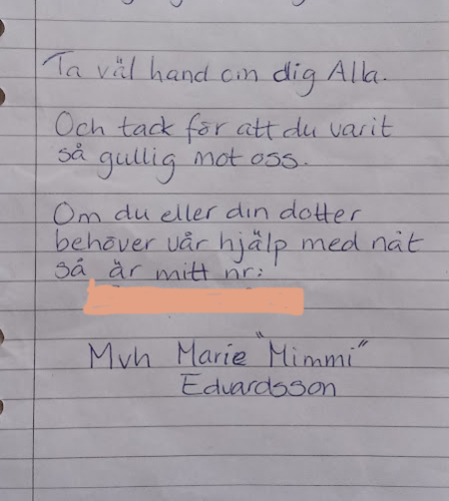 Ta väl hand om dig Alla.
Och tack för att du varit
så gullig mot oss.
Om du eller din dotter
behöver vår hjälp med nåt
så är mitt nr:
Mvh Marie "Mimmi"
Edvardsson